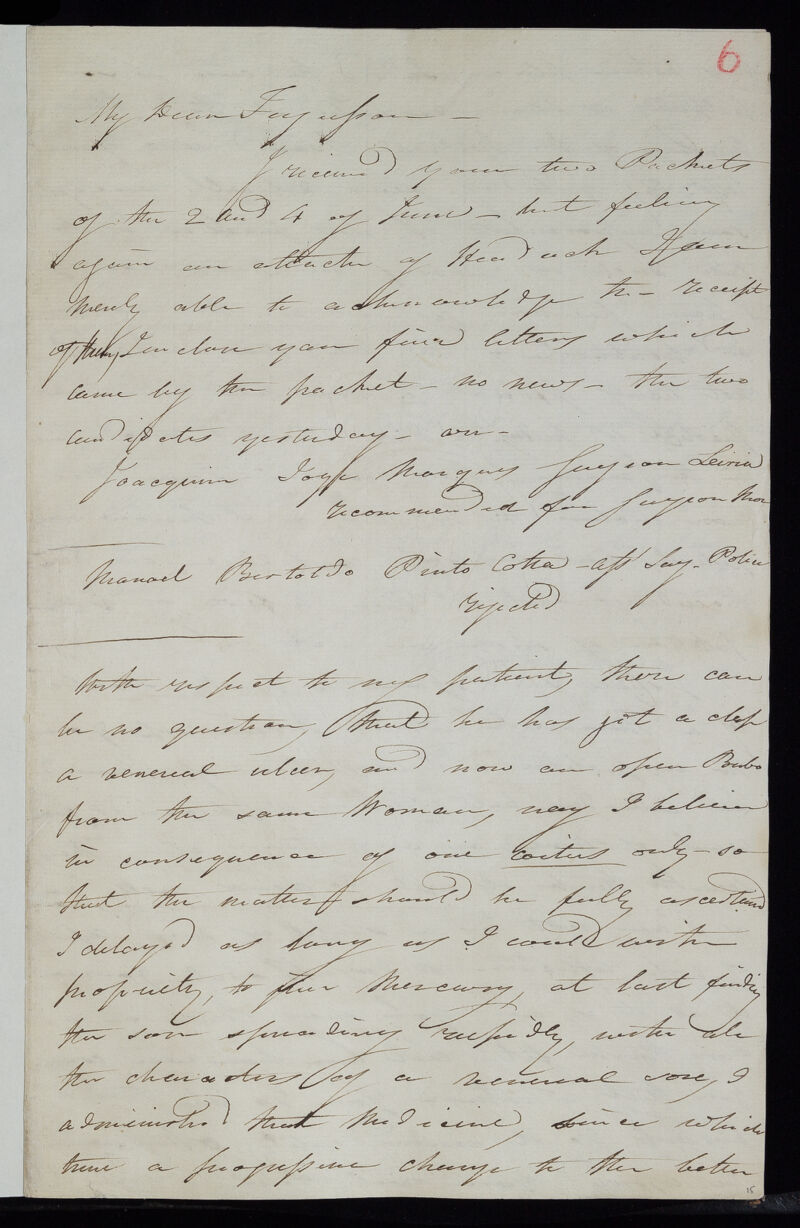 6
My Dear Fergusson —
I received your two Packets
of the 2 and 4 of June — but feeling
again an attack of Headach I am
merely able to acknowledge the — receipt
of them, I enclose you five letters which
came by the packet — no news — the two
candidates yesterday — are —
Joacquim Joze Marques Surgeon Leiria
recommended for Surgeon Mor
Manoel Bertoldo Pinto Cotta — asst Surg. Police
rejected
With respect to my patient, there can
be no question, that he has got a clap
a venereal ulcer, and now an open Bubo
from the same Woman, nay I believe
in consequence of one coitus only — so
that the matter should be fully ascertaind
I delayed as long as I could with
propriety, to give Mercury, at last finding
the sore spreading rapidly, with all
the characters of a venereal sore, I
administred that Medicine, since which
time a progressive change to the better
15